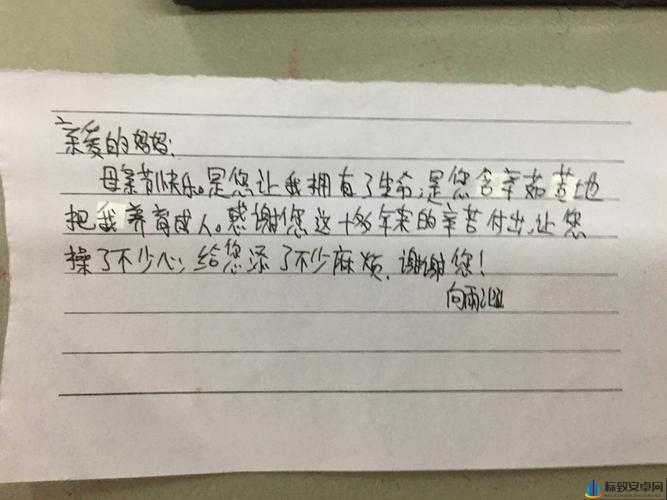 亲爱的妈妈:
母亲节快乐。是您让我拥有了生命,是您含辛茹苦地
把我养育成人。感谢您这十多年来的辛苦付出,让您
操了不少心,给您添了不少麻烦,谢谢您!
向雨
标致安卓网